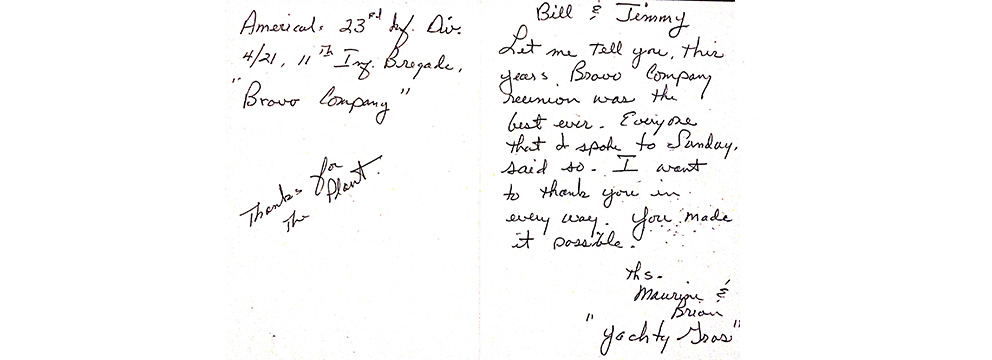 Americal. 23rd Inf. Div.
4/21, 11th Inf. Bregade,
"Bravo Company"
Thanks for
The Plant.
Bill & Jimmy
Let me tell you, this
years Bravo Company
reunion was the
best ever. Everyone
that I spoke to Sunday,
said so. I want
to thank you in
every way. You made
it possible.
ths.
Maurine &
Brian
"Yachty Gras"